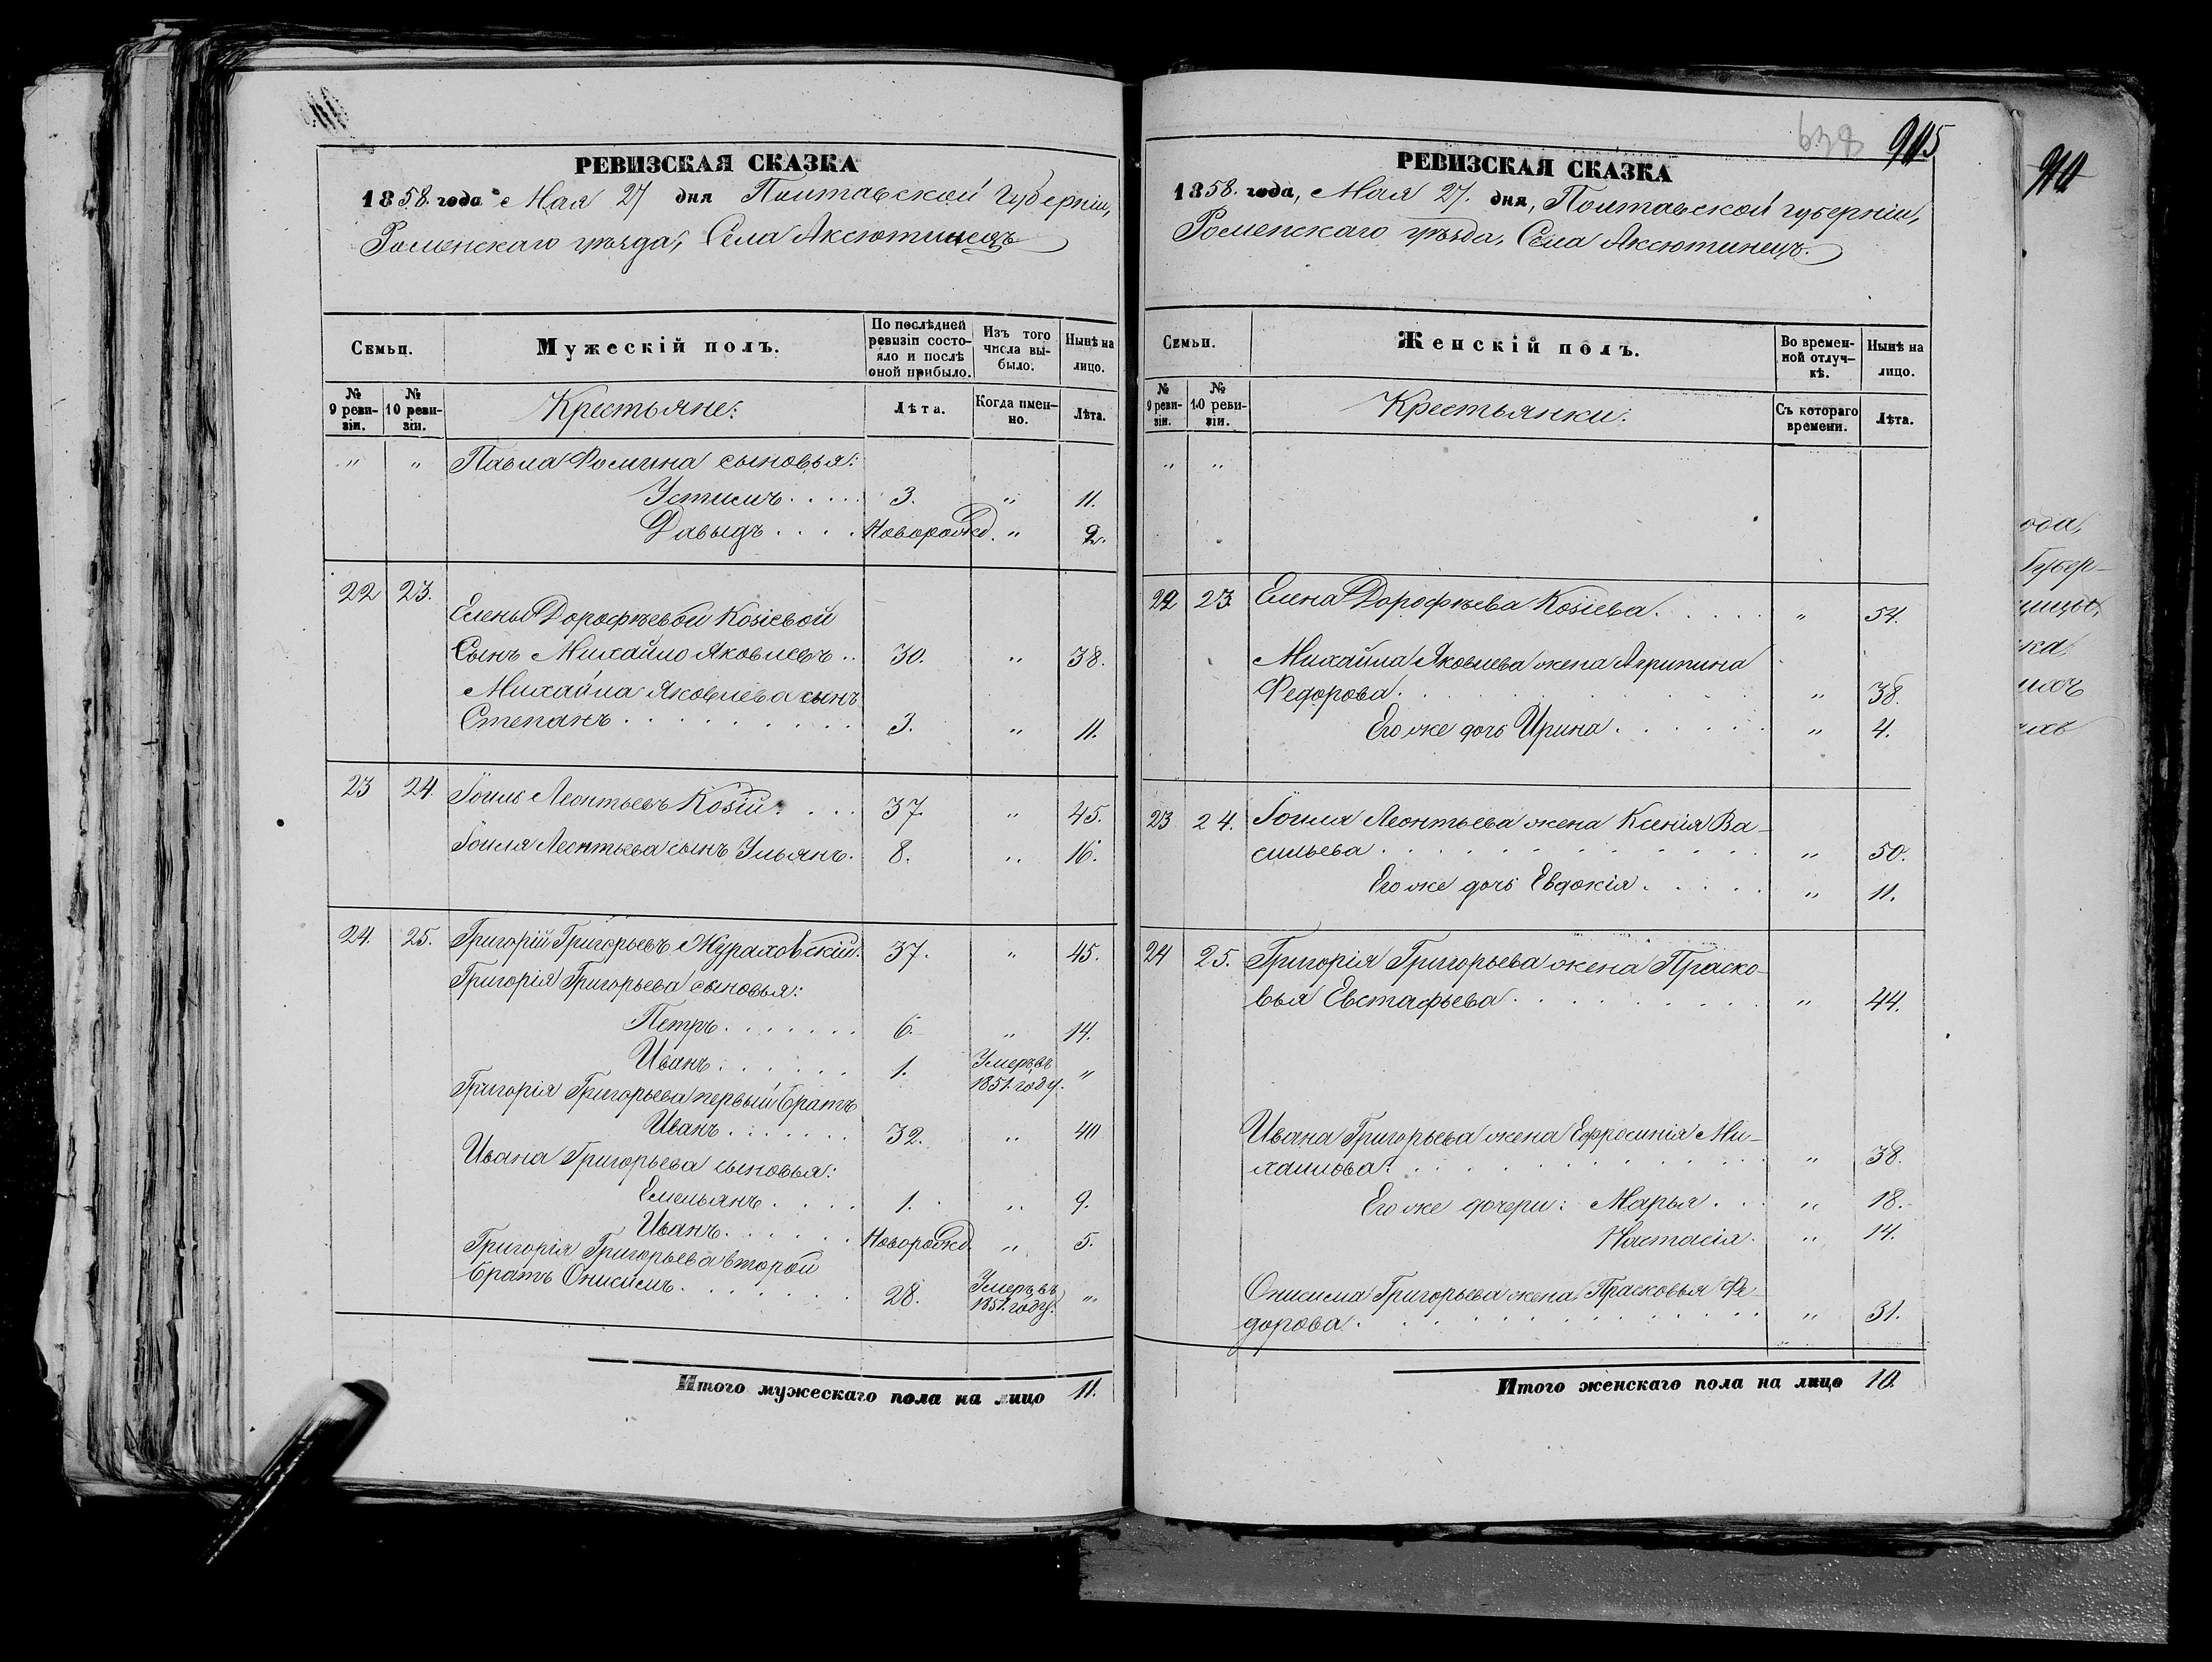 РЕВИЗСКАЯ СКАЗКА
1858. года Мая 27 дня Полтавской губерніи,
Роменскаго уѣзда, Села Аксютинецъ
Семьи.
Мужескій полъ.
По послѣдней ревизіи состояло и послѣ оной прибыло.
Изъ того числа выбыло.
Нынѣ на лицо.
№ 9 ревизіи.
№ 10 ревизіи.
Крестьяне:
Лѣта.
Когда именно.
Лѣта.
" " Павла Фомина сыновья:
Устимъ . . . . 3. " 11.
Давыдъ . . . . Новорожд. " 2.
22 23.
Елены Дорофѣевой Козіевой
Сынъ Михайло Яковлевъ .. 30. " 38.
Михайла Яковлева сынъ
Степанъ . . . . . . . . 3. " 11.
23 24. Іоиль Леонтьевъ Козій . . . 37. " 45.
Іоиля Леонтьева сынъ Ульянъ. 8. " 16.
24. 25. Григорій Григорьевъ Жураховскій. 37. " 45.
Григорія Григорьева сыновья:
Петръ . . . . . . 6. " 14.
Иванъ . . . . . . 1. Умеръ въ 1851. году. "
Григорія Григорьева первый братъ
Иванъ . . . . . . 32. " 40
Ивана Григорьева сыновья:
Емельянъ . . . . 1. " 9.
Иванъ . . . . . . Новорожд. " 5.
Григорія Григорьева второй
братъ Онисимъ . . . . . . . 28. Умеръ въ 1851. году. "
Итого мужескаго пола на лицо 11.
638 915
РЕВИЗСКАЯ СКАЗКА
1858. года, Мая 27. дня, Полтавской губерніи,
Роменскаго уѣзда, Села Аксютинецъ.
Семьи.
Женскій полъ.
Во временной отлучкѣ.
Нынѣ на лицо.
№ 9 ревизіи.
№ 10 ревизіи.
Крестьянки:
Съ котораго времени.
Лѣта.
" "
22 23. Елена Дорофѣева Козіева . . . . . " 54.
Михайла Яковлева жена Агрипина
Федорова . . . . . . . . . " 38.
Его же дочь Ирина . . . . . . " 4.
23 24. Іоиля Леонтьева жена Ксенія Ва-
сильева . . . . . . . . . . . . " 50.
Его же дочь Евдокія . . . . . " 11.
24 25. Григорія Григорьева жена Праско-
вья Евстафьева . . . . . . . . . " 44.
Ивана Григорьева жена Ефросинія Ми-
хаилова . . . . . . . . . . . . " 38.
Его же дочери: Марья . . . " 18.
Настасія . " 14.
Онисима Григорьева жена Прасковья Фе-
дорова . . . . . . . . . . . . " 31.
Итого женскаго пола на лицо 10.